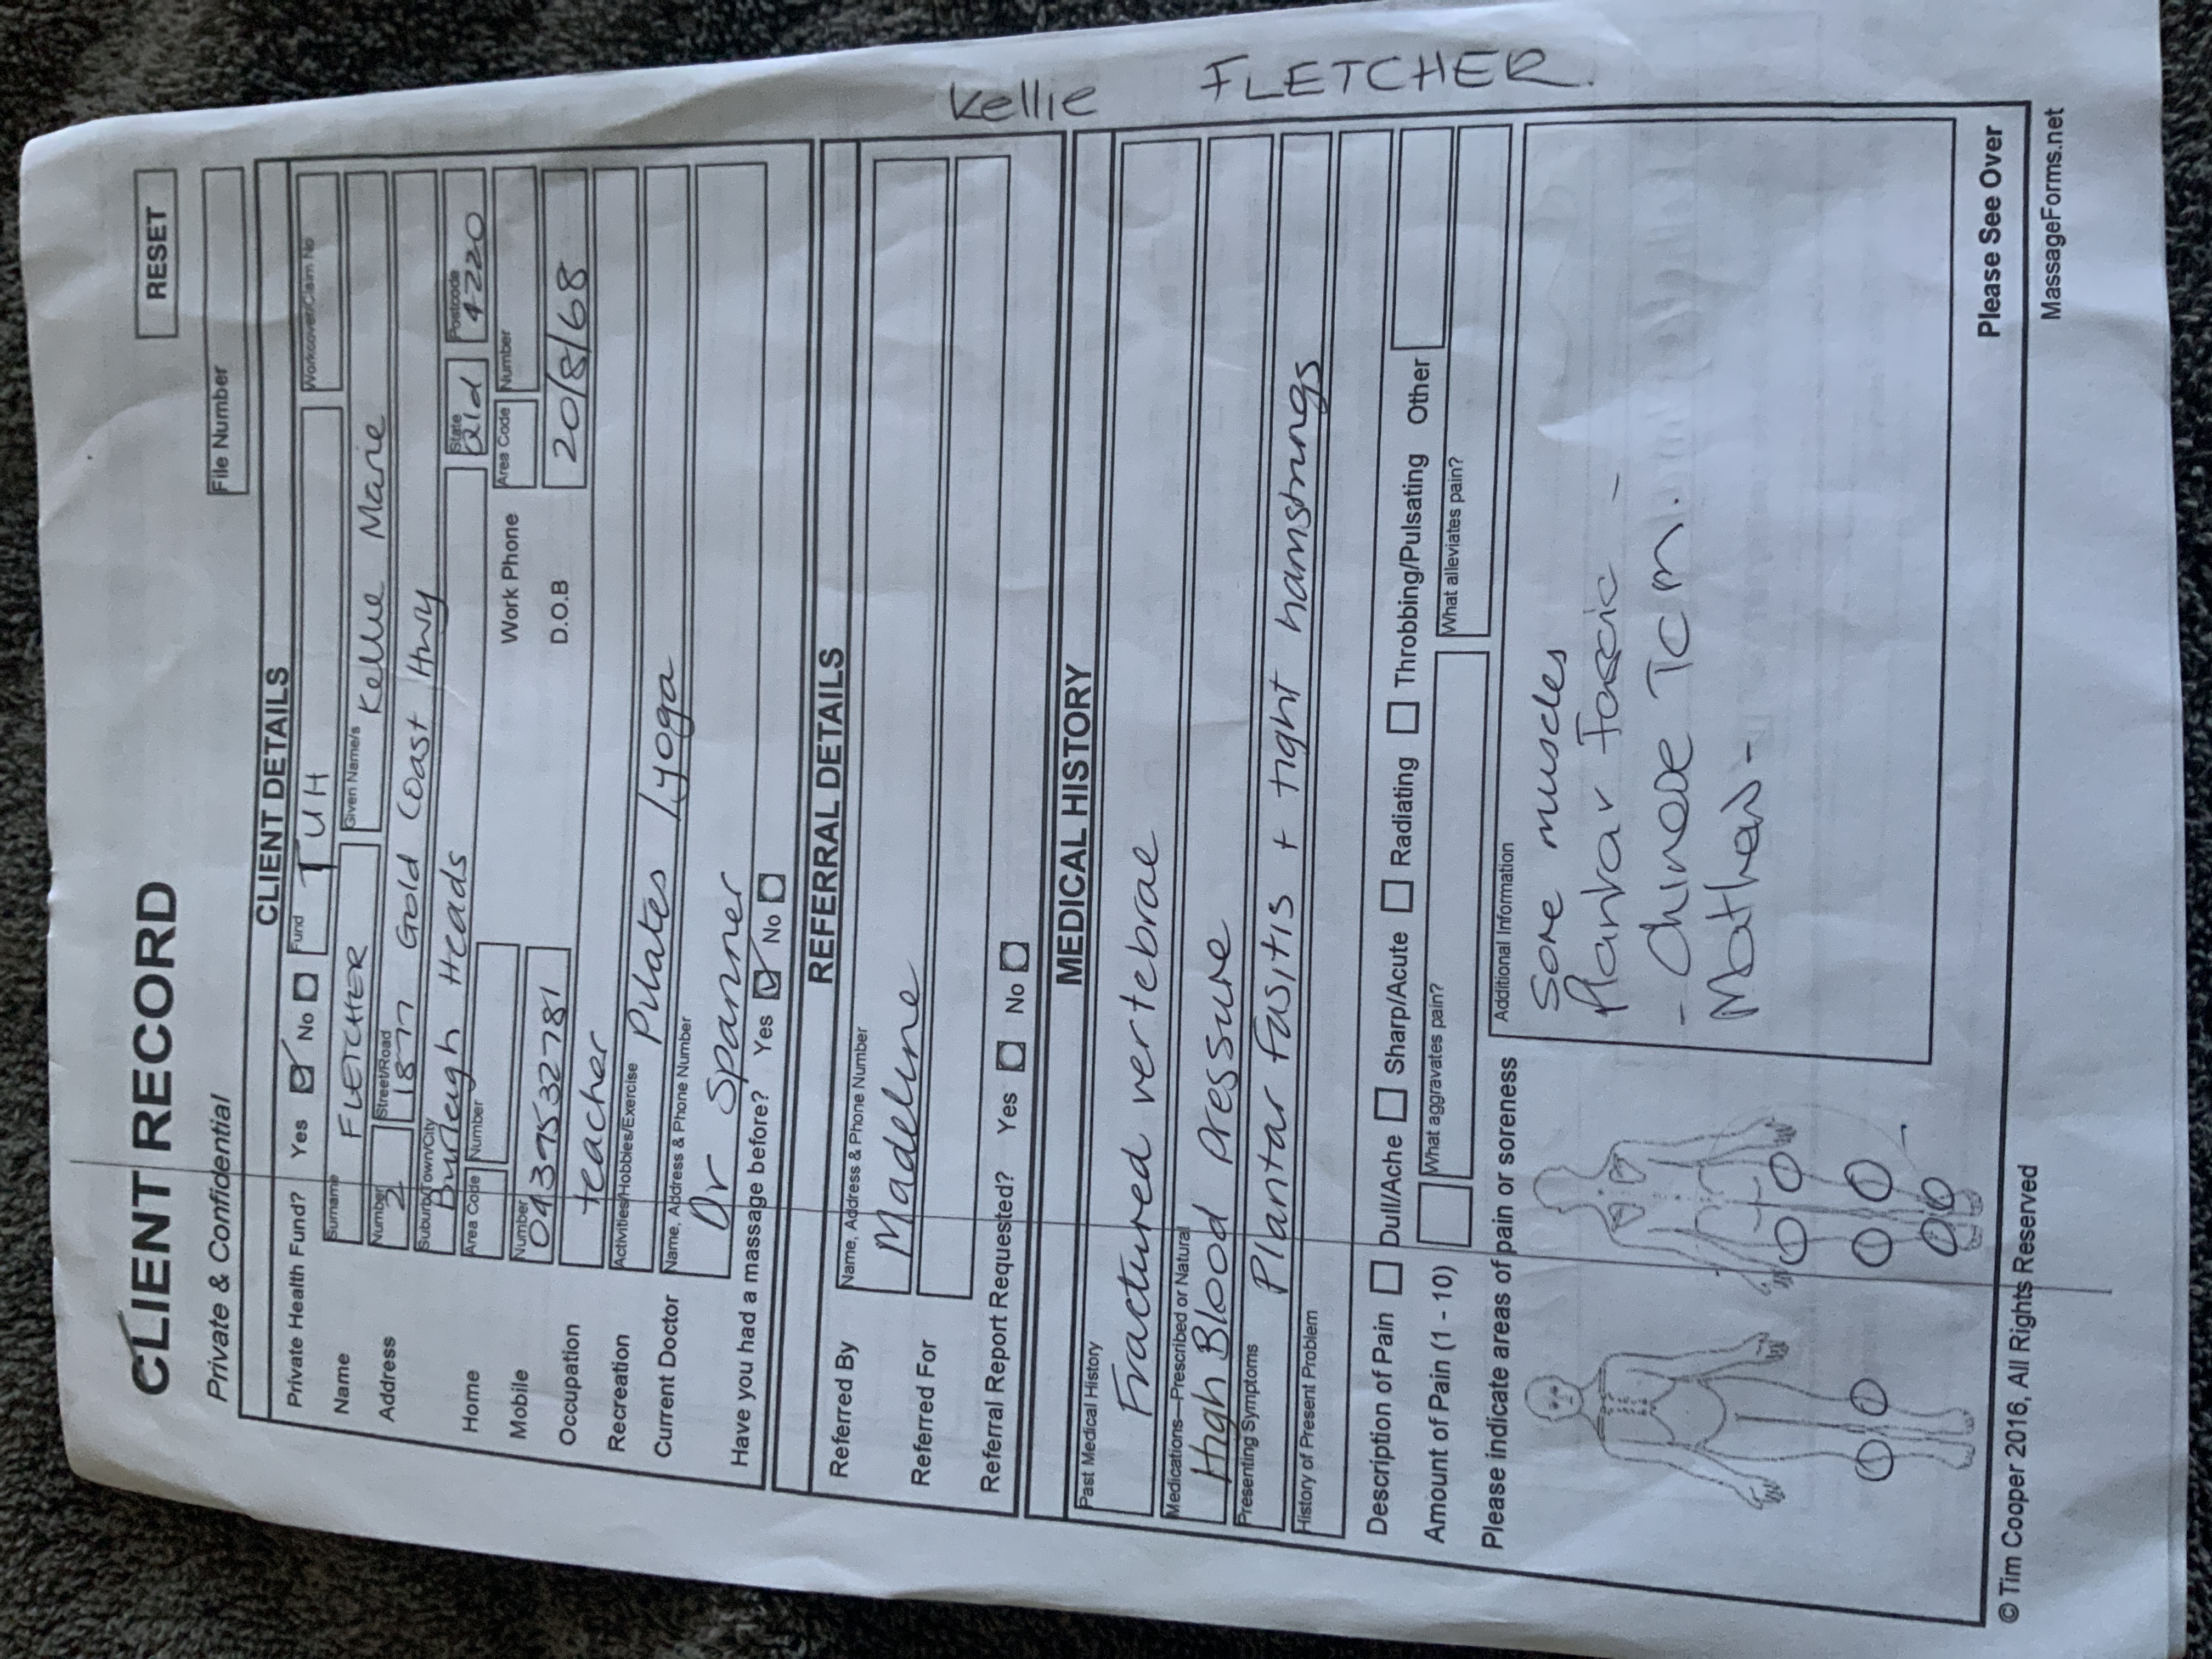 RESET
CLIENT RECORD
Private & Confidential
File Number
CLIENT DETAILS
Private Health Fund? Yes No Fund TUH Workcover/Claim No
Name Surname FLETCHER Given Name/s Kellie Marie
Address Number 2 Street/Road 1877 Gold Coast Hwy
Suburb/Town/City Burleigh Heads State Qld Postcode 4220
Home Area Code Number Work Phone Area Code Number
Mobile Number 0439532781 D.O.B 20/8/68
Occupation teacher
Recreation Activities/Hobbies/Exercise Pilates / yoga
Current Doctor Name, Address & Phone Number Dr Spanner
Have you had a massage before? Yes No
REFERRAL DETAILS
Referred By Name, Address & Phone Number Madeline
Referred For
Referral Report Requested? Yes No
Kellie FLETCHER.
MEDICAL HISTORY
Past Medical History
Fractured vertebrae
Medications—Prescribed or Natural
High Blood Pressure
Presenting Symptoms Plantar fasitis + tight hamstrings
History of Present Problem
Description of Pain Dull/Ache Sharp/Acute Radiating Throbbing/Pulsating Other
Amount of Pain (1 - 10) What aggravates pain? What alleviates pain?
Please indicate areas of pain or soreness
Additional Information
Sore muscles
Plantar Fascic -
- Chinese TCM.
Mothers -
Please See Over
© Tim Cooper 2016, All Rights Reserved MassageForms.net